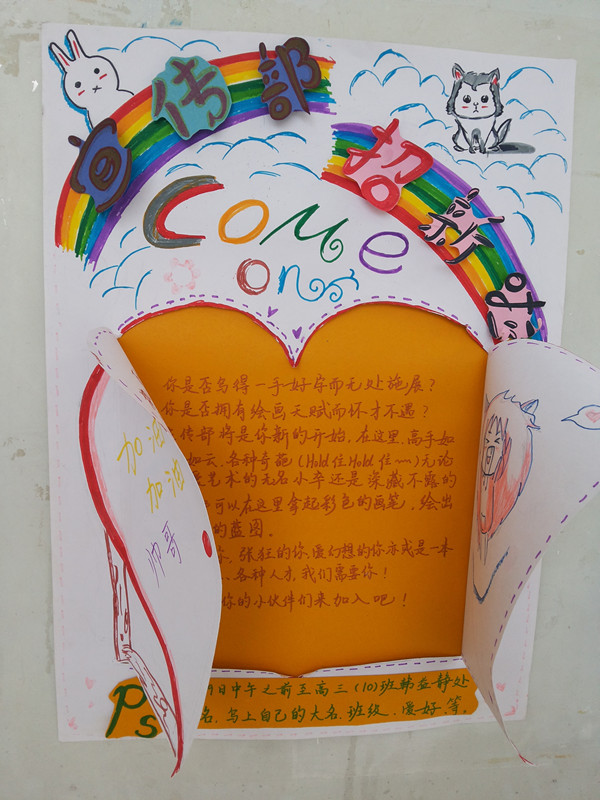 宣传部
招新
come
on
你是否写得一手好字而无处施展？
你是否拥有绘画天赋而怀才不遇？
传部将是你新的开始，在这里，高手如
如云，各种奇葩（Hold住Hold住~~）无论
艺术的无名小卒还是深藏不露的
可以在这里拿起彩色的画笔，绘出
的蓝图。
你，张狂的你，爱幻想的你亦或是一本
各种人才，我们需要你！
你的小伙伴们来加入吧！
加油
加油
帅哥
Ps
日中午之前至高三（10）班韩亚静处
名，写上自己的大名、班级、爱好、等。